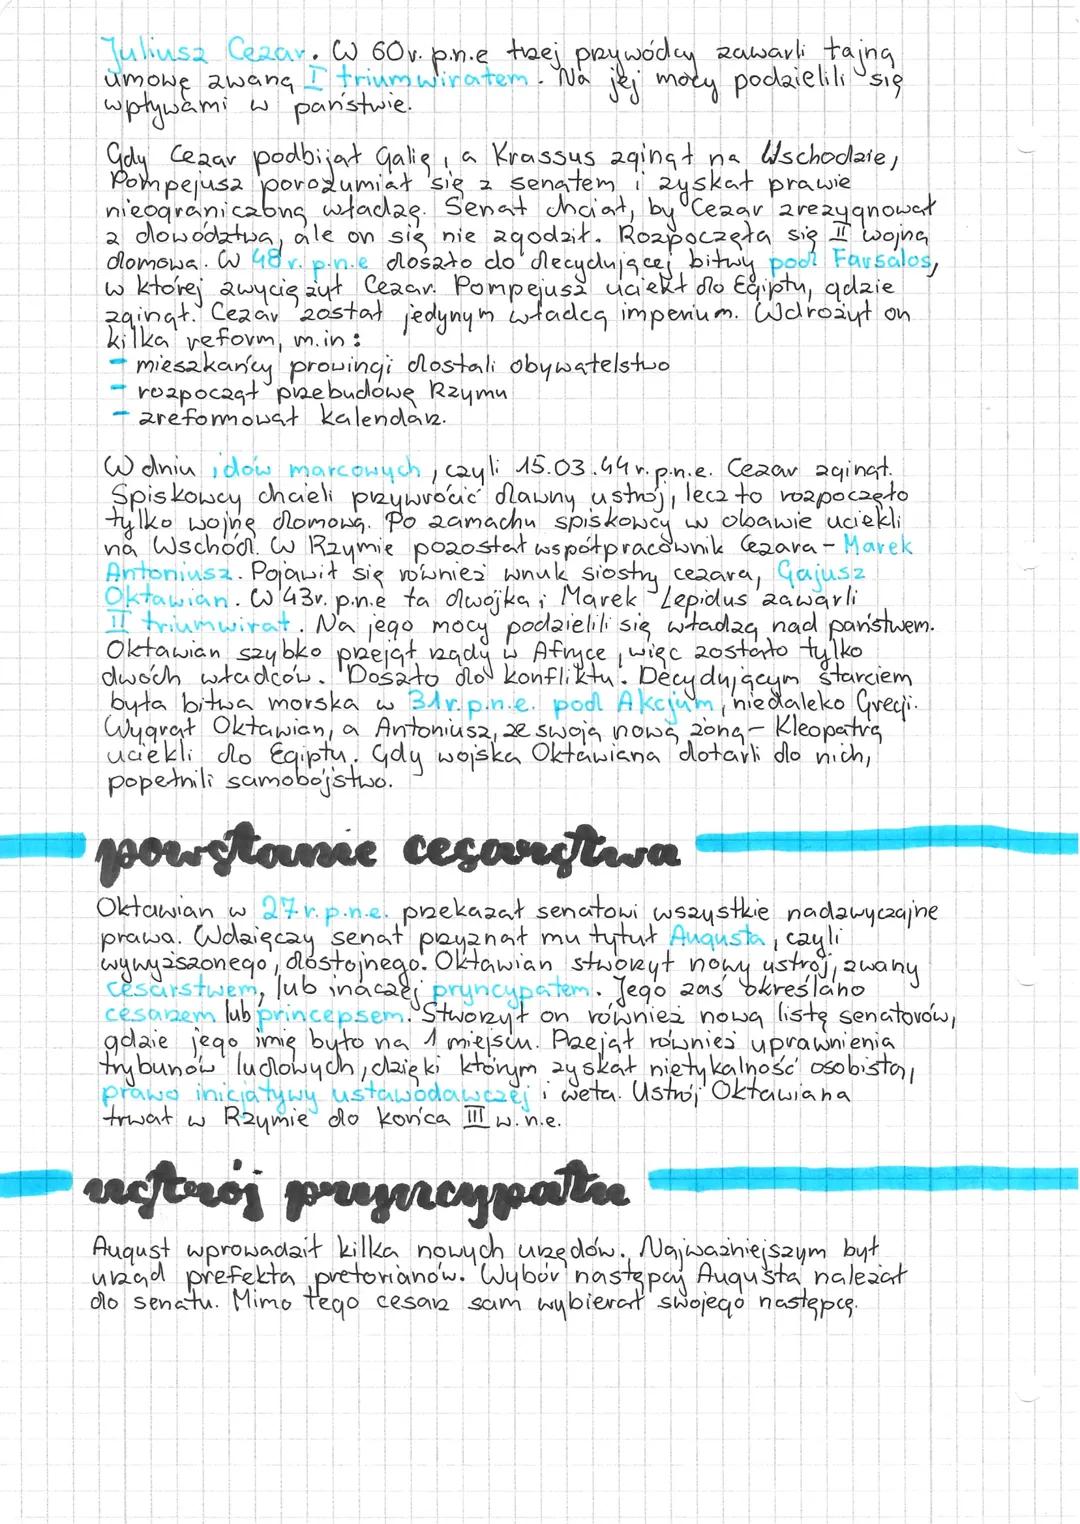 Juliusz Cezar. W 60r. p.n.e trzej przywódcy zawarli tajną
umowę zwaną I triumwiratem. Na jej mocy podzielili się
wpływami w państwie.
Gdy Cezar podbijał Galię, a Krassus zginął na Wschodzie,
Pompejusz porozumiał się z senatem i zyskał prawie
nieograniczoną władzę. Senat chciał, by Cezar zrezygnował
z dowództwa, ale on się nie zgodził. Rozpoczęła się II wojna
domowa. W 48 r. p.n.e doszło do decydującej bitwy pod Farsalos,
w której zwyciężył Cezar. Pompejusz uciekł do Egiptu, gdzie
zginął. Cezar został jedynym władcą imperium. Wdrożył on
kilka reform, m.in:
- mieszkańcy prowincji dostali obywatelstwo
- rozpoczął przebudowę Rzymu
- zreformował kalendarz.
W dniu idów marcowych, czyli 15.03.44r.p.n.e. Cezar zginął.
Spiskowcy chcieli przywrócić dawny ustrój, lecz to rozpoczęło
tylko wojnę domową. Po zamachu spiskowcy w obawie uciekli
na Wschód. W Rzymie pozostał współpracownik Cezara - Marek
Antoniusz. Pojawił się również wnuk siostry cezara, Gajusz
Oktawian. W 43r. p.n.e ta dwójka i Marek Lepidus zawarli
II triumwirat. Na jego mocy podzielili się władzą nad państwem.
Oktawian szybko przejął rządy w Afryce, więc zostało tylko
dwóch władców. Doszło do konfliktu. Decydującym starciem
była bitwa morska w 31r.p.n.e. pod Akcjum, niedaleko Grecji.
Wygrał Oktawian, a Antoniusz, ze swoją nową żoną - Kleopatrą
uciekli do Egiptu. Gdy wojska Oktawiana dotarli do nich,
popełnili samobójstwo.
powstanie cesarstwa
Oktawian w 27r.p.n.e. przekazał senatowi wszystkie nadzwyczajne
prawa. Wdzięczy senat przyznał mu tytuł Augusta, czyli
wywyższonego, dostojnego. Oktawian stworzył nowy ustrój, zwany
cesarstwem, lub inaczej pryncypatem. Jego zaś określano
cesarzem lub princepsem. Stworzył on również nową listę senatorów,
gdzie jego imię było na 1 miejscu. Przejął również uprawnienia
trybunów ludowych, dzięki którym zyskał nietykalność osobistą,
prawo inicjatywy ustawodawczej i weta. Ustrój Oktawiana
trwał w Rzymie do końca III w.n.e.
ustrój pryncypatu
August wprowadził kilka nowych urzędów. Najważniejszym był
urząd prefekta pretorianów. Wybór następcy Augusta należał
do senatu. Mimo tego cesarz sam wybierał swojego następcę.